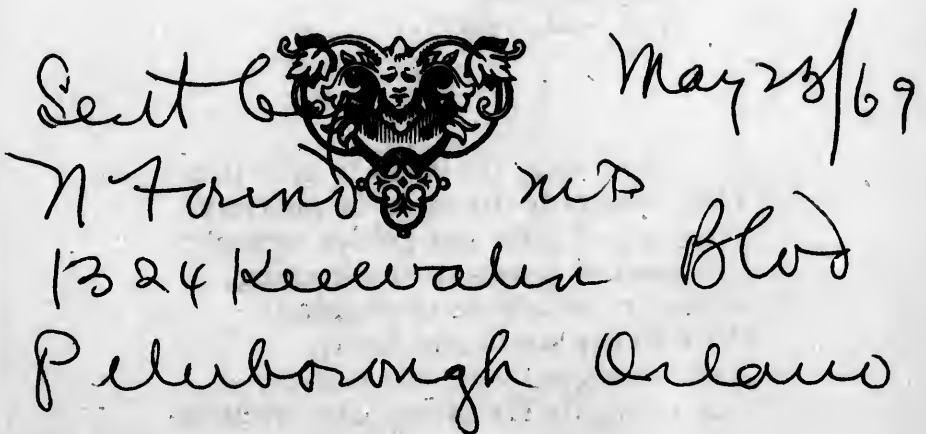 Sent by May 23/69
N Found MD
1324 Keewatin Blvd
Peterborough Ontario